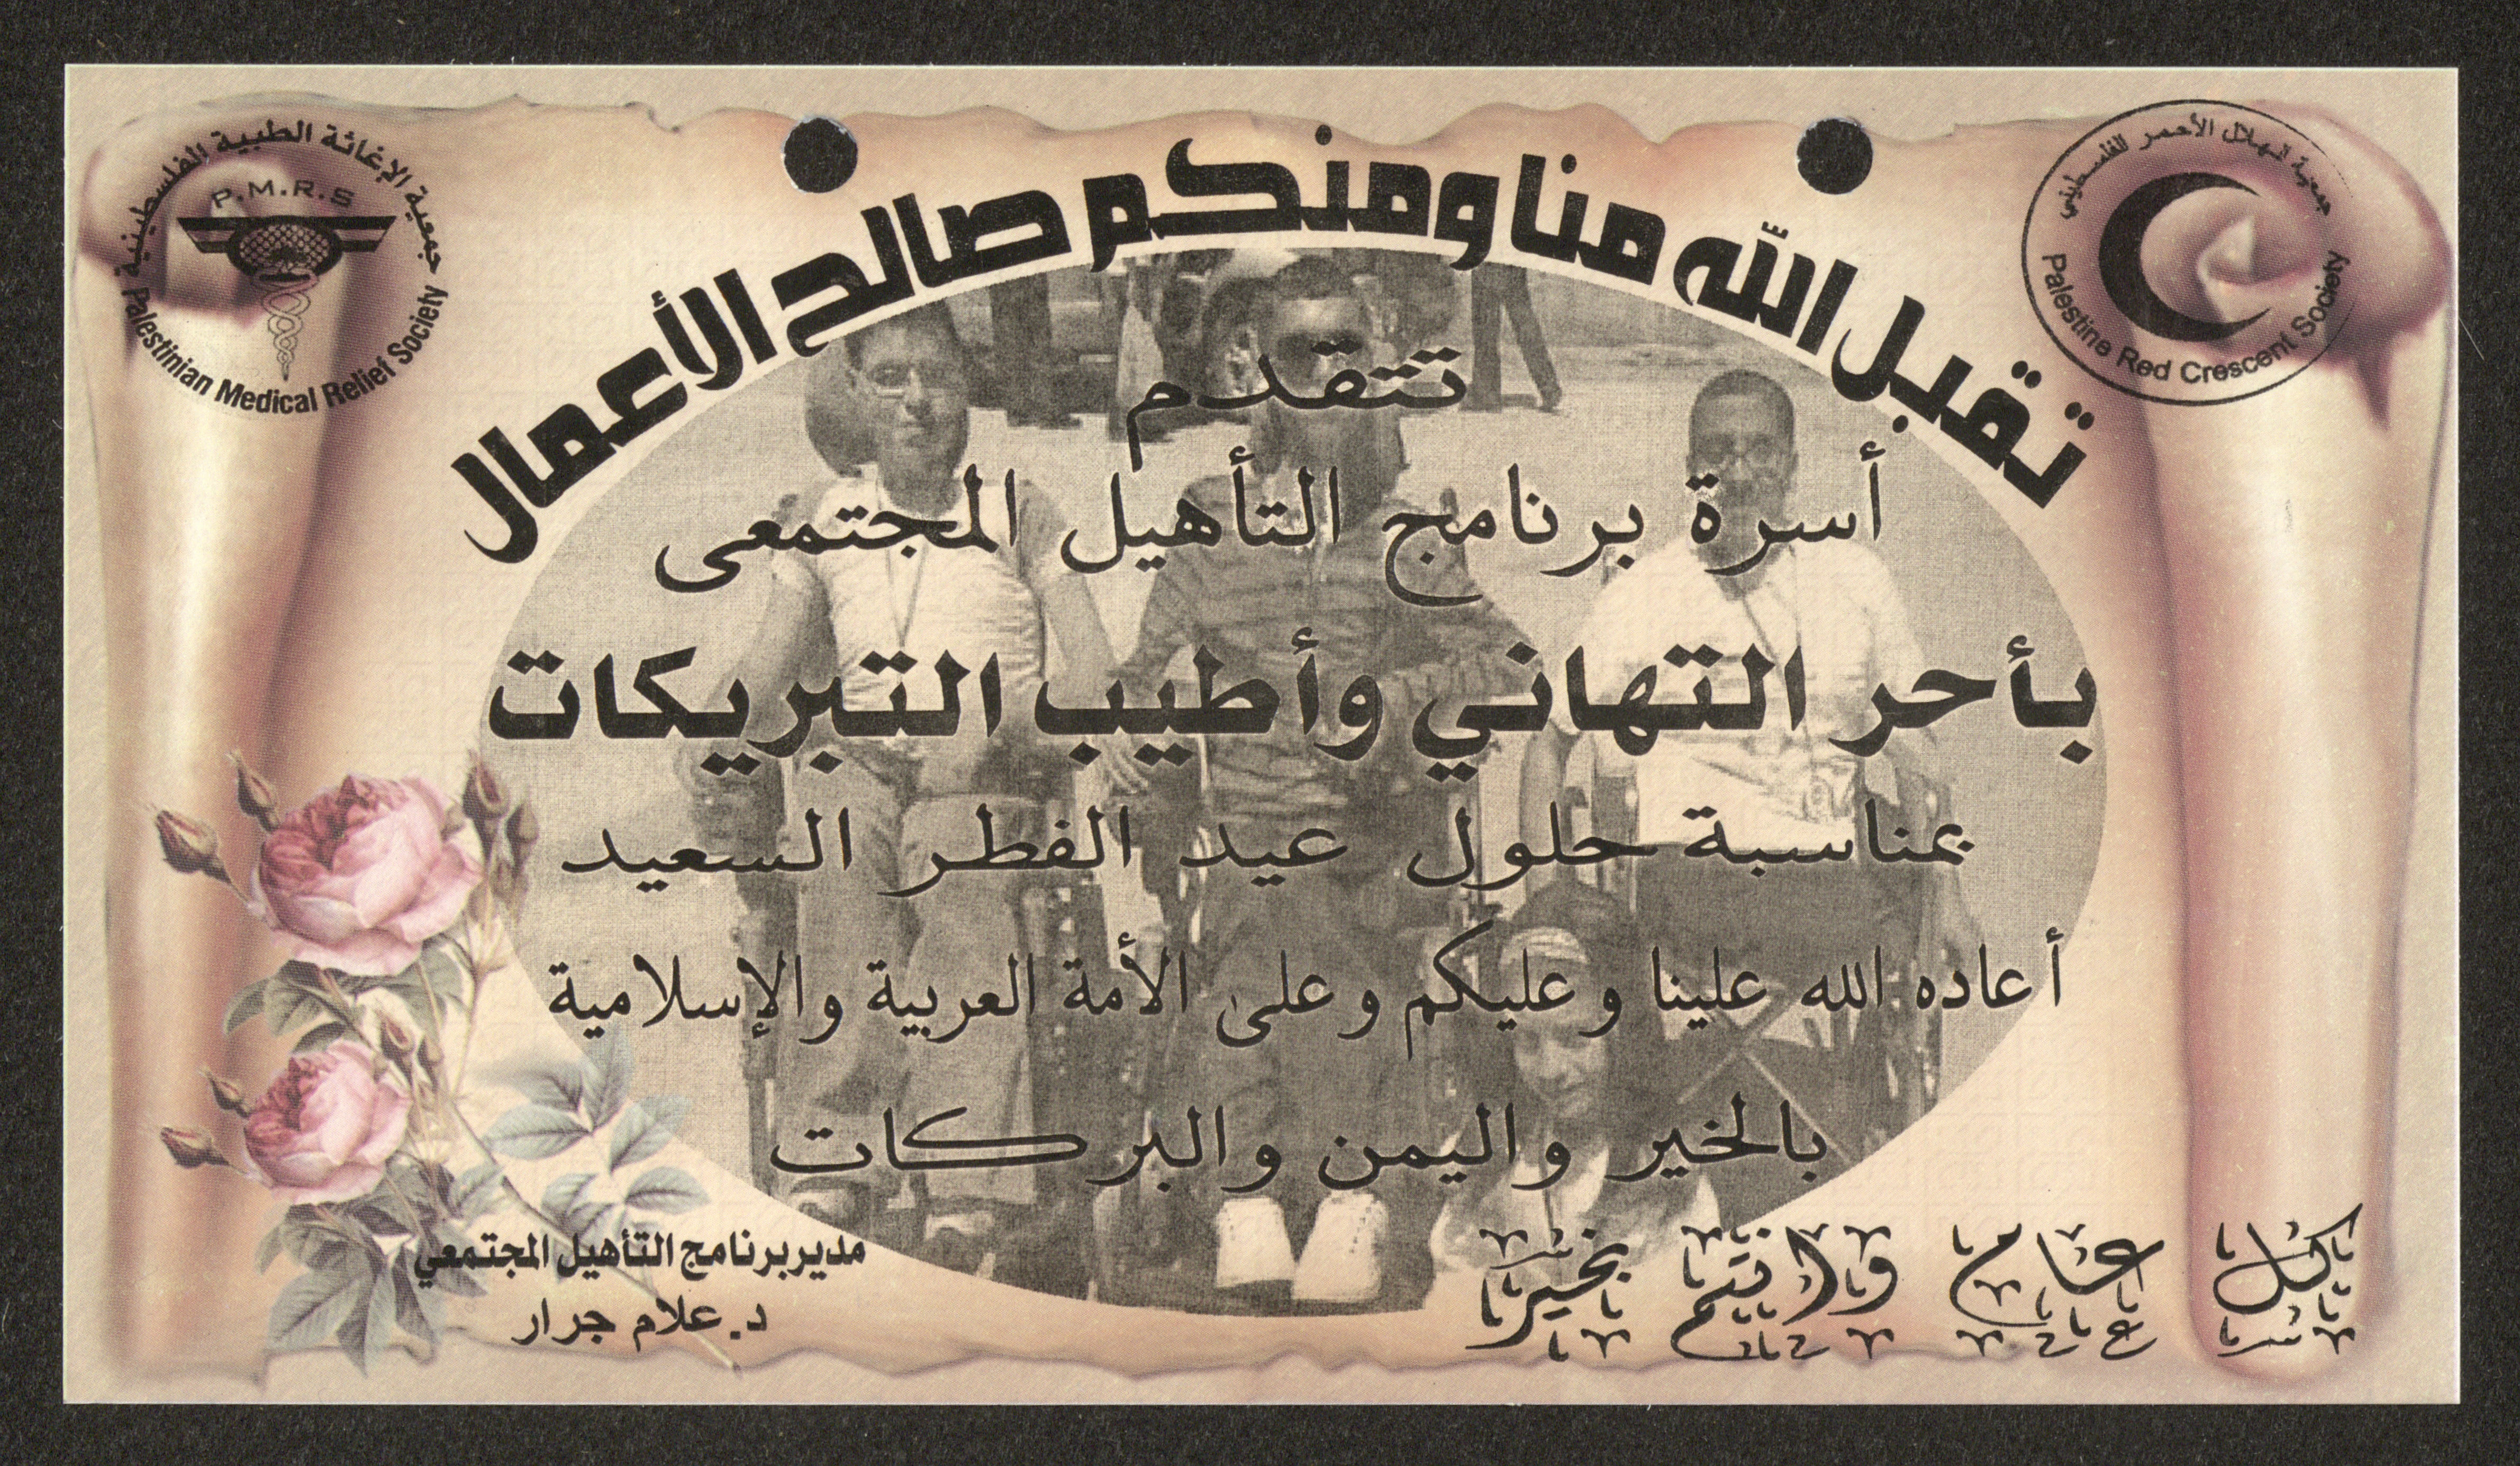 جمعية الهلال الأحمر الفلسطيني
Palestine Red Crescent Society
جمعية الإغاثة الطبية الفلسطينية
P.M.R.S
Palestinian Medical Relief Society
تقبل الله منا ومنكم صالح الأعمال
تتقدم
أسرة برنامج التأهيل المجتمعى
بأحر التهاني وأطيب التبريكات
بمناسبة حلول عيد الفطر السعيد
أعاده الله علينا وعليكم وعلى الأمة العربية والإسلامية
بالخير واليمن والبركات
كل عام وانتم بخير
مدير برنامج التأهيل المجتمعي
د. علام جرار